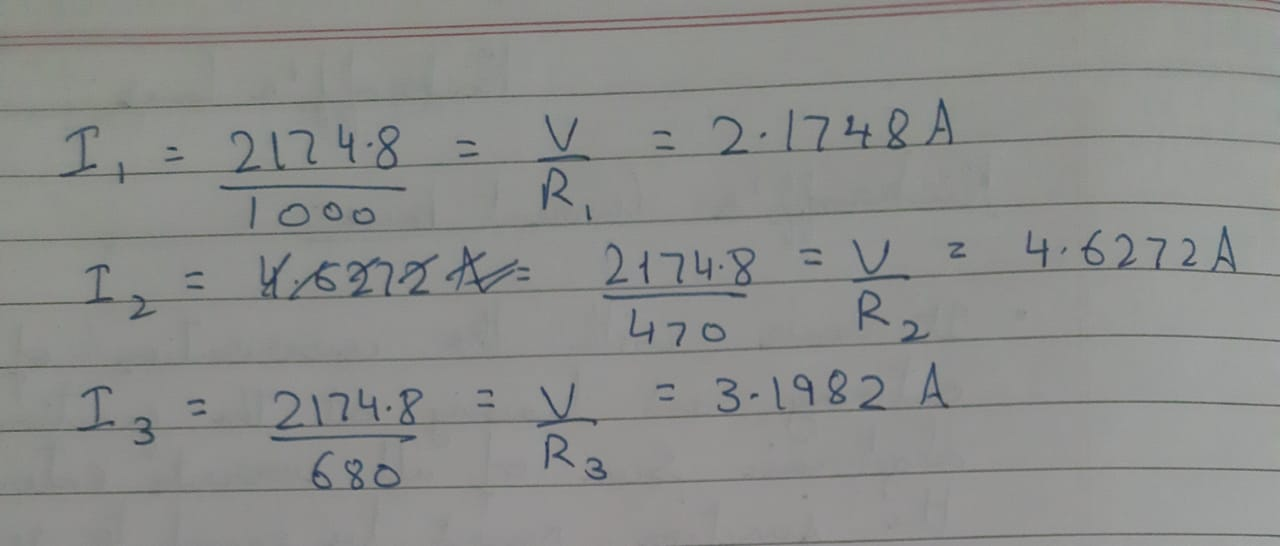 I₁ = 2174.8/1000 = V/R₁ = 2.1748A
I₂ = 4.6272 A = 2174.8/470 = V/R₂ = 4.6272A
I₃ = 2174.8/680 = V/R₃ = 3.1982 A